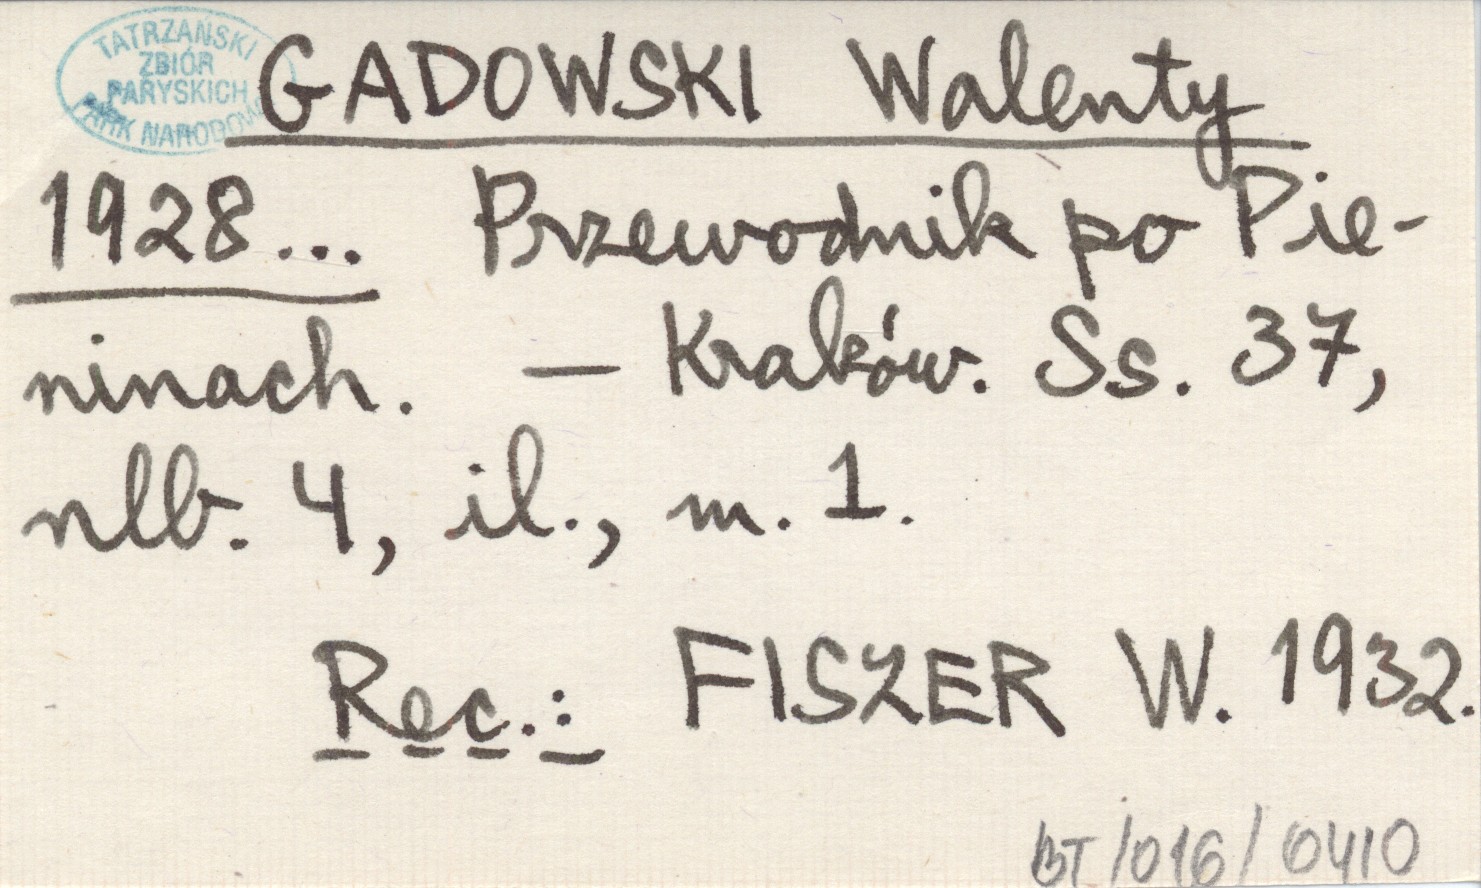 TATRZAŃSKI
ZBIÓR
PARYSKICH
PARK NARODOWY
GADOWSKI Walenty
1928... Przewodnik po Pie-
ninach. — Kraków. Ss. 37,
nlb. 4, il., m. 1.
Rec.: FISZER W. 1932.
BT/016/0410